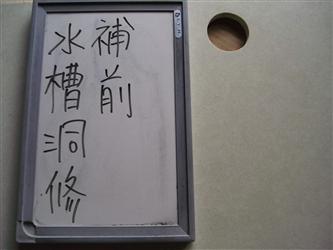 水槽洞修
補前